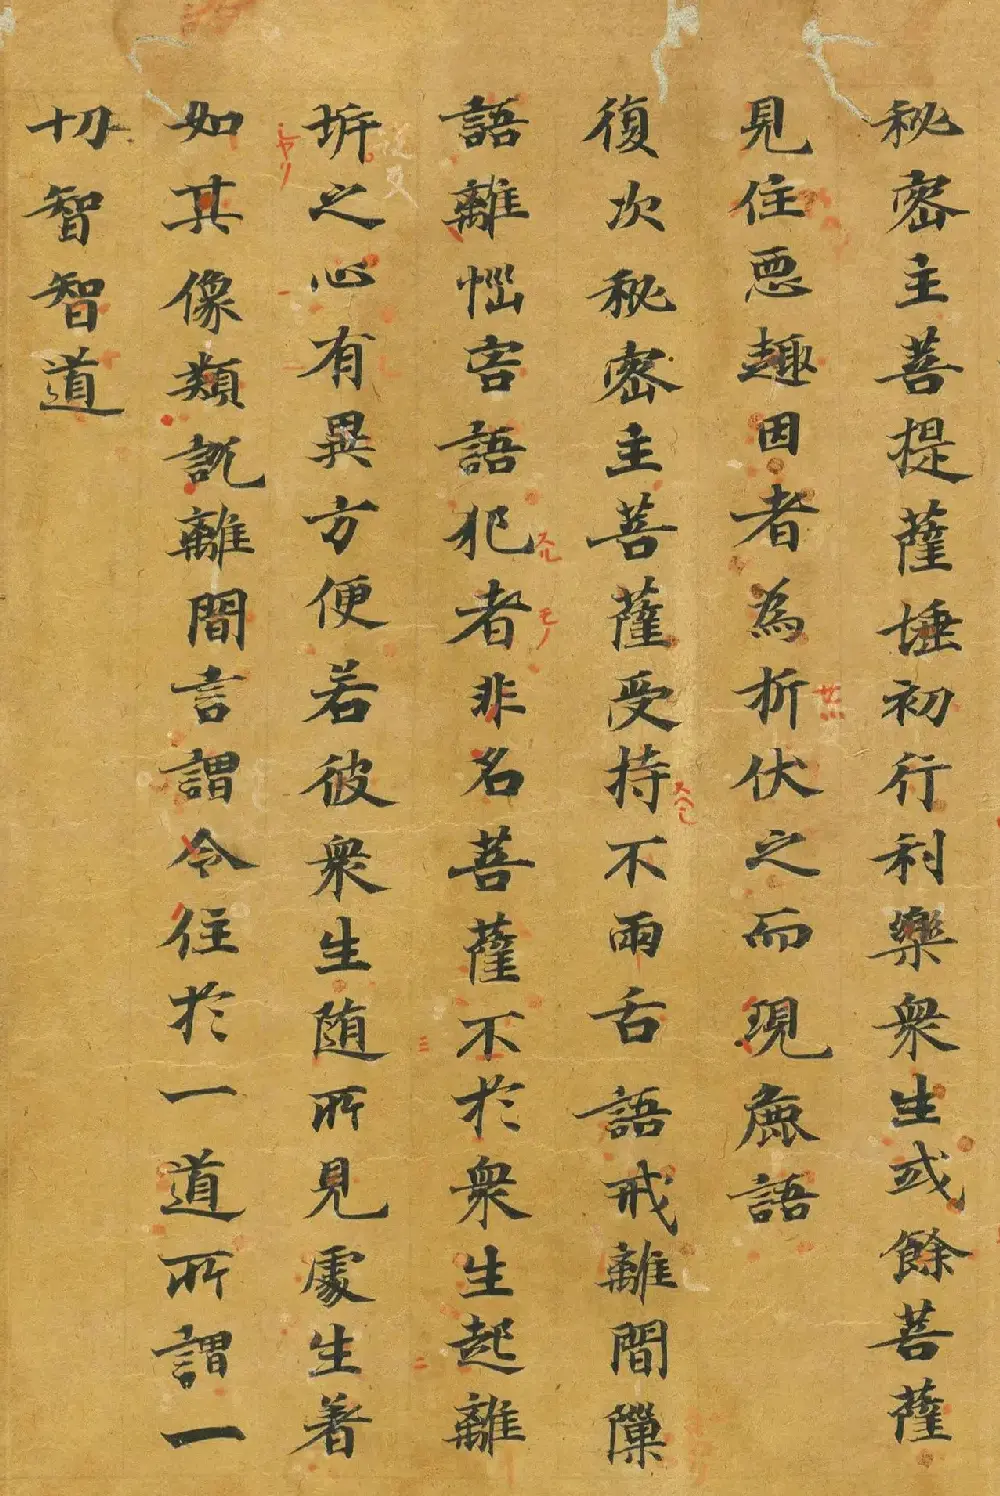 秘密主菩提薩埵初行利樂衆生或餘菩薩
見住惡趣因者為折伏之而現麁語
復次秘密主菩薩受持不兩舌語戒離間隟
語離惱害語犯者非名菩薩不於衆生起離
坼之心有異方便若彼衆生随所見處生着
如其像類説離間言謂令住於一道所謂一
切智智道